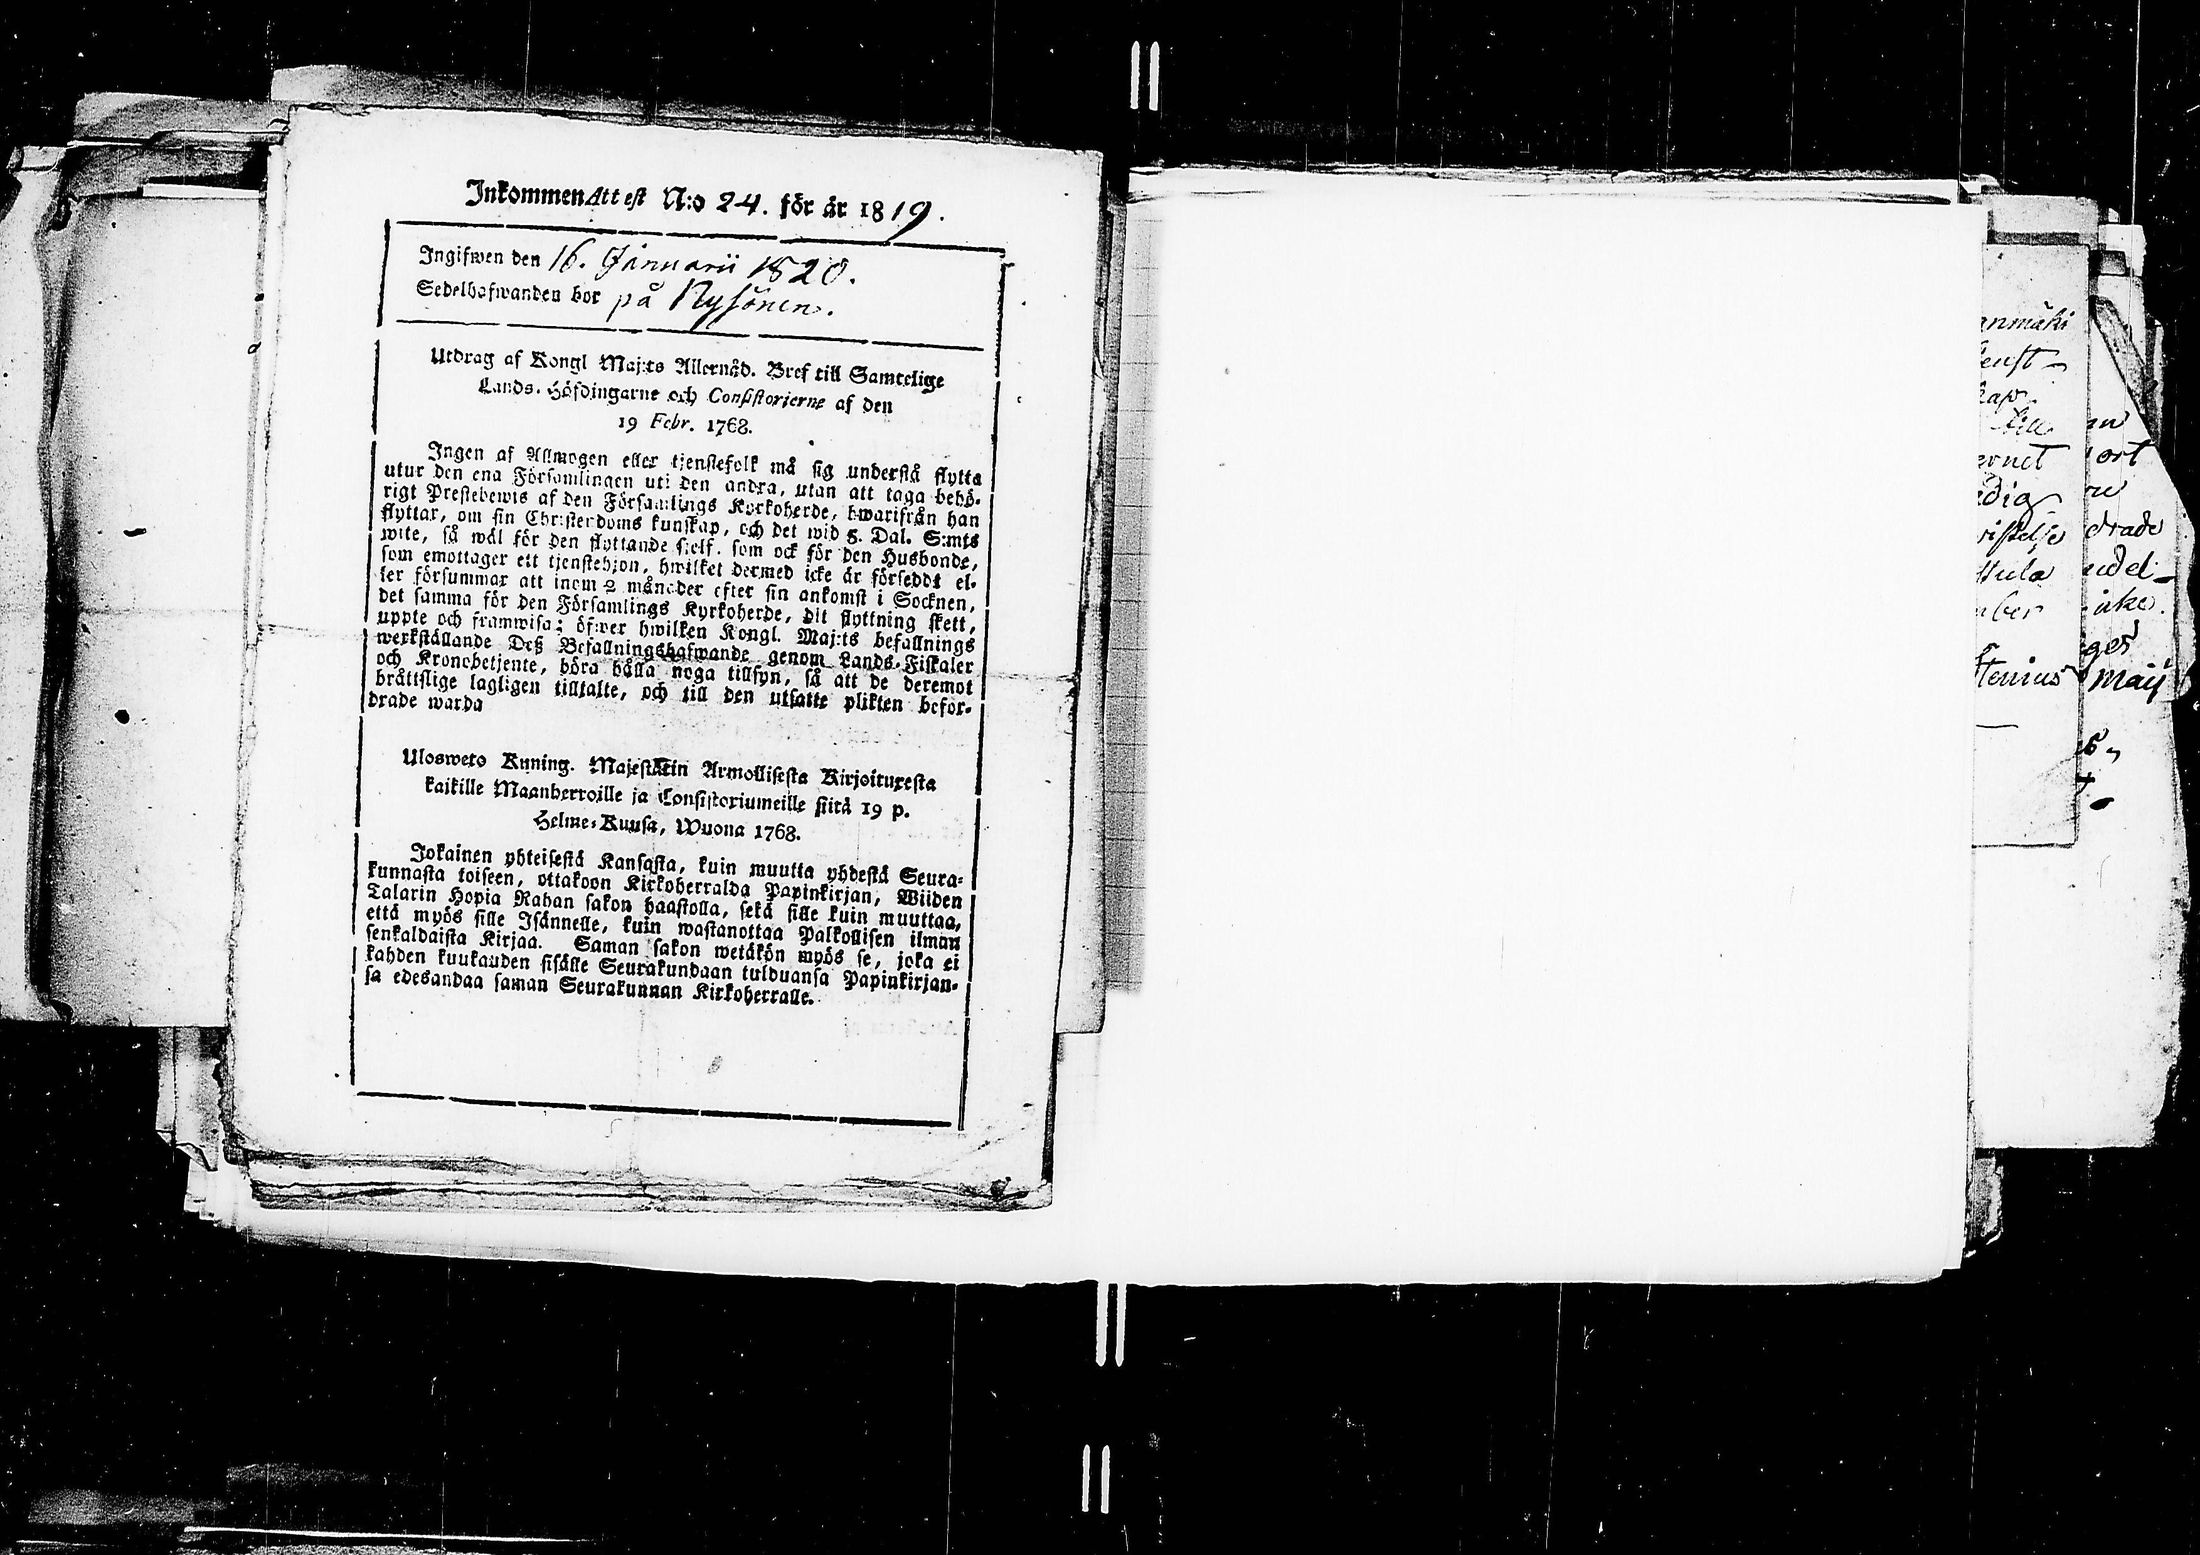 Inkommen Attest N:o 24. för år 1819.
Ingifwen den 16. Januarii 1820.
Sedelhafwanden bor på Nysönen.
Utdrag af Kongl Maj:ts Allernåd. Bref till Samtelige
Lands-Höfdingarne och Consistorierne af den
19 Febr. 1768.
Ingen af Allmogen eller tjenstefolk må sig understå flytta
utur den ena Församlingen uti den andra, utan att taga behö-
rigt Prestebewis af den Församlings Kyrkoherde, hwarifrån han
flyttar, om sin Christendoms kunskap, och det wid 5. Dal. S:mts
wite, så wäl för den flyttande sielf. som ock för den Husbonde,
som emottager ett tjenstehjon, hwilket dermed icke är försedt el-
ler försummar att inom 2 månader efter sin ankomst i Socknen,
det samma för den Församlings Kyrkoherde, dit flyttning skett,
uppte och framwisa; öfwer hwilken Kongl. Maj:ts befallnings
werkställande Deß Befallningshafwande genom Lands-Fiskaler
och Kronobetjente, böra hålla noga tillsyn, så att de deremot
bråttslige lagligen tilltalte, och till den utsatte plikten beför-
drade warda
Ulosweto Kuning. Majestätin Armollisesta Kirjoituxesta
kaikille Maanherroille ja Consistoriumeille siitä 19 p.
Helme-Kuusa, Wuona 1768.
Jokainen yhteisestä Kansasta, kuin muutta yhdestä Seura-
kunnasta toiseen, ottakoon Kirkoherralda Papinkirjan, Wiiden
Talarin Hopia Rahan sakon haastolla, sekä sille kuin muuttaa,
että myös sille Isännelle, kuin wastanottaa Palkollisen ilman
senkaldaista Kirjaa. Saman sakon wetäkön myös se, joka ei
kahden kuukauden sisälle Seurakundaan tulduansa Papinkirjan-
sa edesandaa saman Seurakunnan Kirkoherralle.
anmäki
till
drade
maij